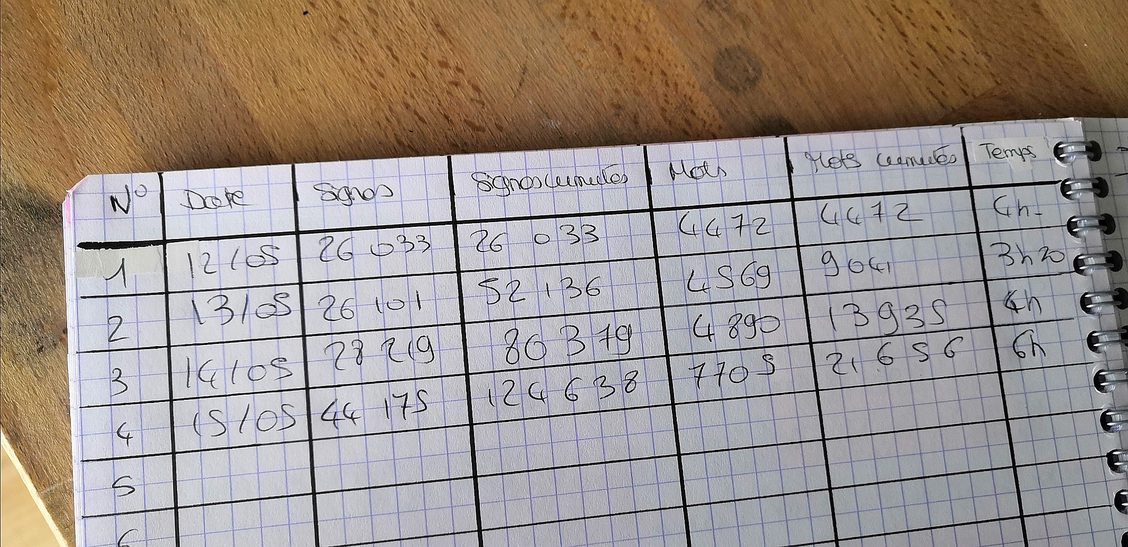 N° Date Signes Signes cumulés Mots Mots cumulés Temps
1 12/05 26 033 26 033 4472 4472 4h-
2 13/05 26 101 52 136 4569 9041 3h20
3 14/05 28 219 80 379 4 890 13 935 4h
4 15/05 44 175 124 638 7705 21 656 6h
5
6